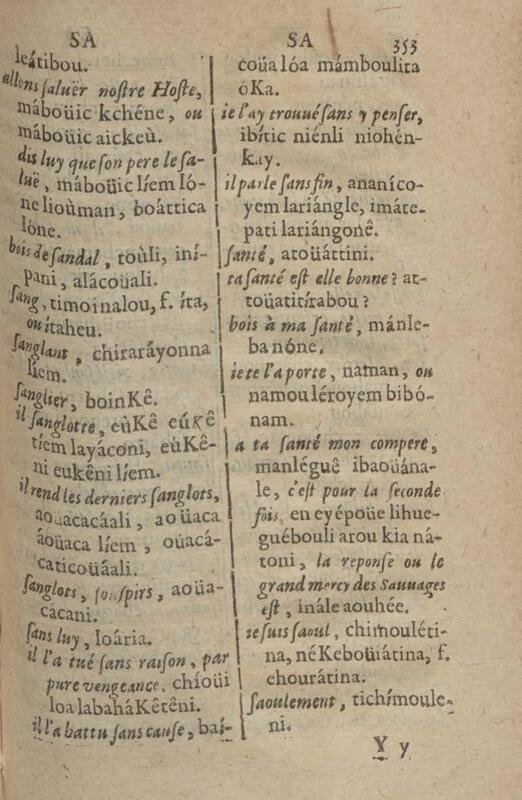 SA
leátibou.
allons ſaluër noſtre Hoſte,
máboüic kchéne, ou
máboüic aickeù.
dis luy que ſon pere le ſa-
luë, máboüic líem ló-
ne lioùman, boáttica
lóne.
bois de ſandal, toùli, iní-
pani, alácoüali.
ſang, timoinalou, f. íta,
ou ítaheu.
ſanglant, chiraráyonna
líem.
ſanglier, boinKê.
il ſanglotte, eùKê eúKê
tíem layáconi, eùKê-
ni eukêni líem.
il rend les derniers ſanglots,
aoüacacáali, aoüaca
áoüaca líem, oúacá-
caticoüáali.
ſanglots, ſouſpirs, aoüa-
cácani.
ſans luy, loária.
il l'a tué ſans raiſon, par
pure vengeance, chíoüi
loa labaháKêtêni.
il l'a battu ſans cauſe, baí-
SA 353
coüa lóa mámboulita
óKa.
ie l'ay trouué ſans y penſer,
ibític niénli niohén-
kay.
il parle ſans fin, ananíco-
yem lariángle, imáte-
pati lariángonê.
ſanté, atoüáttini.
ta ſanté eſt elle bonne? at-
toüatitírabou?
bois à ma ſanté, mánle-
ba nóne.
ie te l'aporte, naman, ou
namouléroyem bibó-
nam.
a ta ſanté mon compere,
manléguê ibaoüána-
le, c'eſt pour la ſeconde
fois, en eyépoüe lihue-
guébouli arou kia ná-
toni, la reponſe ou le
grand mercy des Sauuages
eſt, inále aouhée.
ie ſuis ſaoul, chimouléti-
na, néKeboüiátina, f.
ehourátina.
ſaoulement, tichímoule-
ni.
Y y